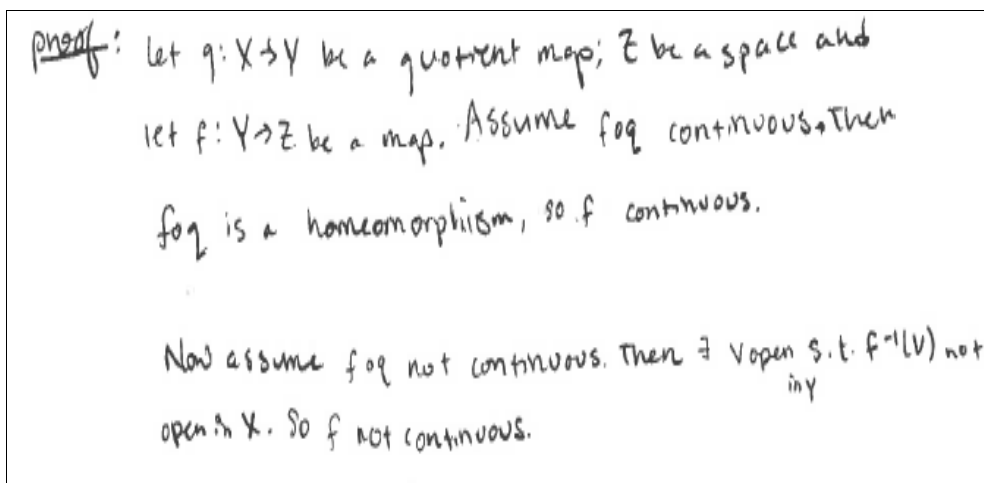 proof: let q: X→Y be a quotient map; Z be a space and
let f: Y→Z be a map. Assume f∘q continuous. Then
f∘q is a homeomorphism, so f continuous.
Now assume f∘q not continuous. Then ∃ V open s.t. f⁻¹(V) not
in Y
open in X. So f not continuous.